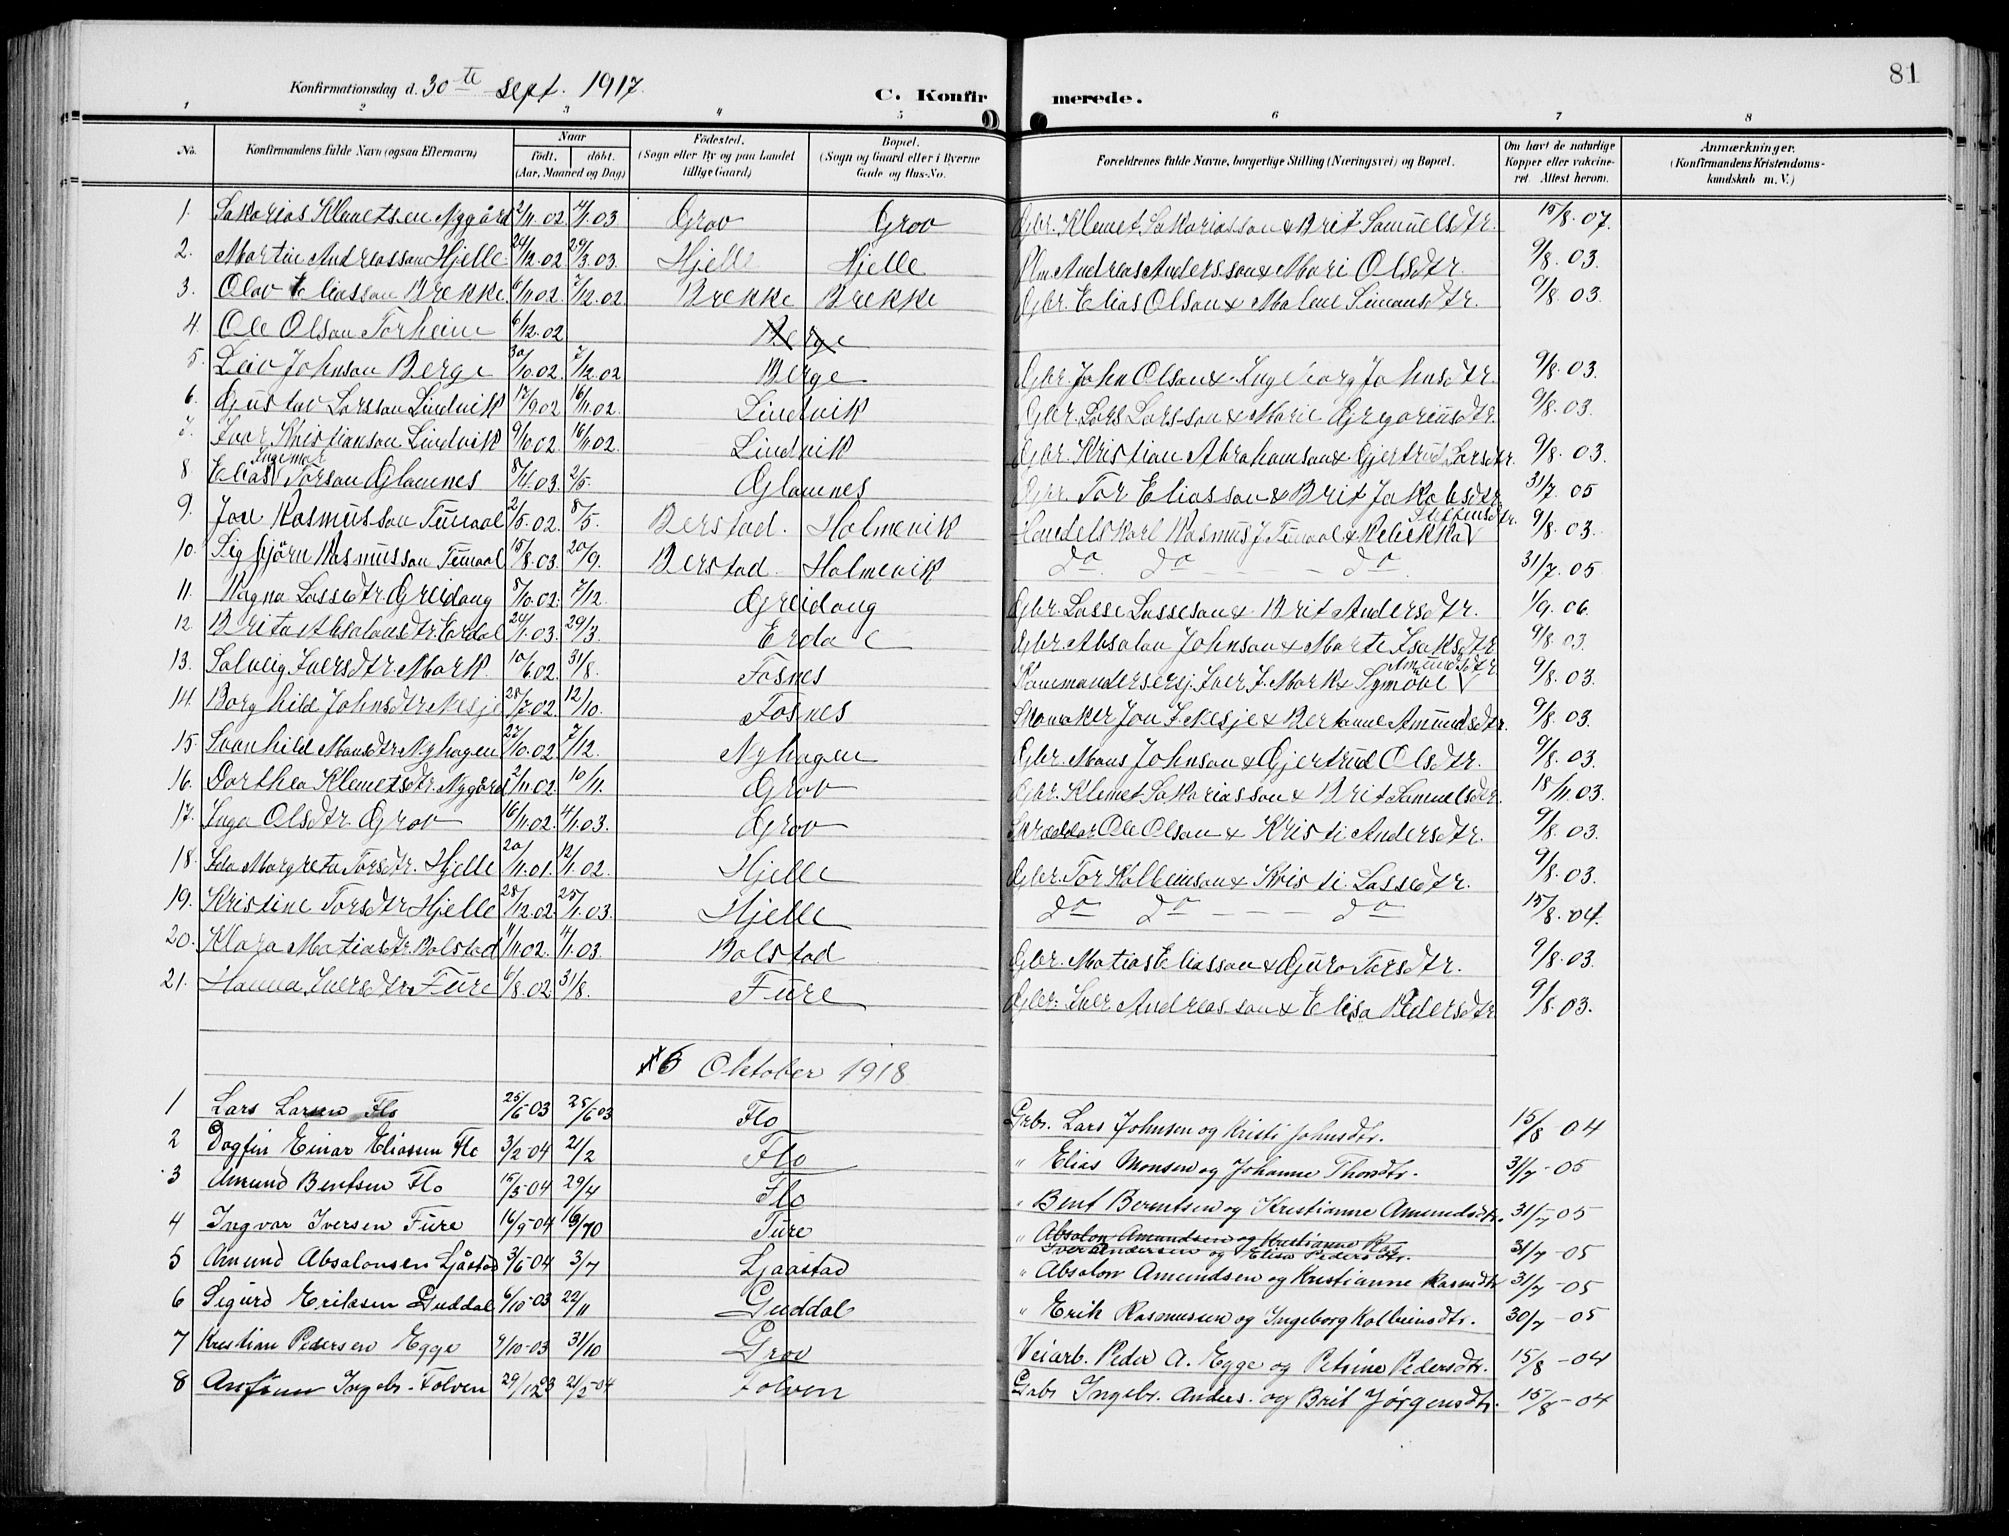 81
Konfirmationsdag d. 30te sept. 1917.
C. Konfirmerede.
1 2 3 4 5 6 7 8
No. Konfirmandens fulde Navn (ogsaa Efternavn) Naar födt. döbt. (Aar, Maaned og Dag) Födested. (Sogn eller By og paa Landet tillige Gaard) Bopæl. (Sogn og Gaard eller i Byerne Gade og Hus-No. Forældrenes fulde Navne, borgerlige Stilling (Næringsvei) og Bopæl. Om havt de naturlige Kopper eller vakcineret. Attest herom. Anmærkninger. (Konfirmandens Kristendomskundskab m. V.)
1. Sakarias Klemetsen Nygård 2/11.02. 4/1.03 Grov Grov Gbr. Klemet Sakariasson & Brit Samuelsdtr. 15/8.07.
2. Martin Andreasson Hjelle 24/12.02 29/3.03. Hjelle Hjelle Andreas Anderssson & Mari Olsdtr. 9/8.03.
3. Olav Eliasson Brekke 6/11.02. 7/12.02 Brekke Brekke Gbr. Elias Olson & Malene Simonsdtr. 9/8.03.
4. Ole Olson Torheim 6/12.02 Berge
5. Leiv Johnson Berge 30/10.02. 7/12.02 Berge Gbr. John Olson & Ingeborg Johnsdtr. 9/8.03.
6. Gustav Larsson Lindvik 17/9.02 16/11.02. Lindvik Gbr. Lars Larsson & Marie Gregoriusdtr. 9/8.03.
7. Ivar Kristianson Lindvik 9/10.02. 16/11.02. Lindvik Gbr. Kristian Abrahamson & Gjertrud Larsdtr. 9/8.03.
8 Elias Ingemar Torson Glamnes 8/11.03. 2/5. Glamnes Gbr. Tor Eliasson & Brit Jakobsdtr. 31/7.05
9. Jon Rasmusson Timaal 2/5.02. 8/5. Berstad. Holmevik Handelskarl Rasmus J. Timaal & Rebekka Steffensdtr. 9/8.03.
10. Sigbjörn Rasmusson Timaal 15/8.03. 20/9. Berstad Holmevik do do - - - do 31/7.05
11. Ragna Lassedtr. Greidung 8/10.02. 7/12. Greidung Gbr. Lasse Lasseson & Brit Andersdtr. 1/9.06.
12. Brita Absalonsdtr. Erdal 24/1.03. 29/3. Erdal Gbr. Absalon Johnson & Marte Isaksdtr 9/8.03.
13. Solveig Iversdtr. Mork. 10/6.02. 31/8. Fosnes Iver J. Mork & Symöve Amundsdtr. 9/8.03.
14. Borghild Johnsdtr. Nesje 28/7.02. 12/10. Fosnes Skomaker Jon I. Nesje & Bertine Amundsdtr. 9/8.03.
15. Svanhild Monsdtr. Nyhagen 27/10.02. 7/12. Nyhagen Gbr. Mons Johnson & Gjertrud Olsdtr. 9/8.03.
16. Dorthea Klemetsdtr. Nygård 2/11.02. 10/11. Grov Gbr. Klemet Sakariasson & Brit Samuelsdtr. 18/11.03.
17. Inga Olsdtr. Grov 16/11.02. 4/1.03. Grov Skrædder Ole Olson & Kristi Andersdtr. 9/8.03.
18. Ida Margreta Torsdtr. Hjelle 20/11.01. 12/1.02. Hjelle Gbr. Tor Kolbeinson & Kristi. Lassedtr. 9/8.03.
19. Kristine Torsdtr Hjelle 28/12.02. 25/1.03. Hjelle do do - - - do 15/8.04.
20. Klara Matiasdtr. Bolstad 11/11.02. 4/1.03. Bolstad Gbr. Matias Eliasson & Guro Torsdtr. 9/8.03.
21. Hanna Iversdtr Fure 6/8.02. 31/8. Fure Gbr. Iver Andreasson & Elisa Pedersdtr 9/8.03.
6 Oktober 1918
1 Lars Larsen Flo 25/5 03 25/6 03 Flo Grbr. Lars Johnsen og Kristi Johnsdtr. 15/8 04
2 Dagfin Einar Eliassen Flo 3/2-04 21/2 Flo " Elias Monsen og Johanne Thorsdtr. 31/7-05
3 Amund Bentsen Flo 15/3-04 29/4 Flo " Bent Berentsen og Kristianne Amundsdtr. 31/7-05
4 Ingvar Iversen Fure 16/9-04 16/10 Fure " Absalon Amundsen og Kristianne Ras
Iver Andersen og Elisa Pedersdtr. 31/7-05
5 Amund Absalonsen Ljåstad 3/6-04 3/7 Ljaastad " Absalon Amundsen og Kristianne Rasmdtr 31/7-05
6 Sigurd Eriksen Guddal 6/10-03 22/11 Guddal " Erik Rasmussen og Ingeborg Kolbeinsdtr. 30/7-05
7 Kristian Pedersen Egge 9/10-03 31/10 Grov Veiarb. Peder A. Egge og Petrine Pedersdtr. 15/8-04
8 Ingebr. Folven 29/12 03 21/2-04 Folven Grbr Ingebr. Anders. og Brit Jørgensdtr. 15/8-04